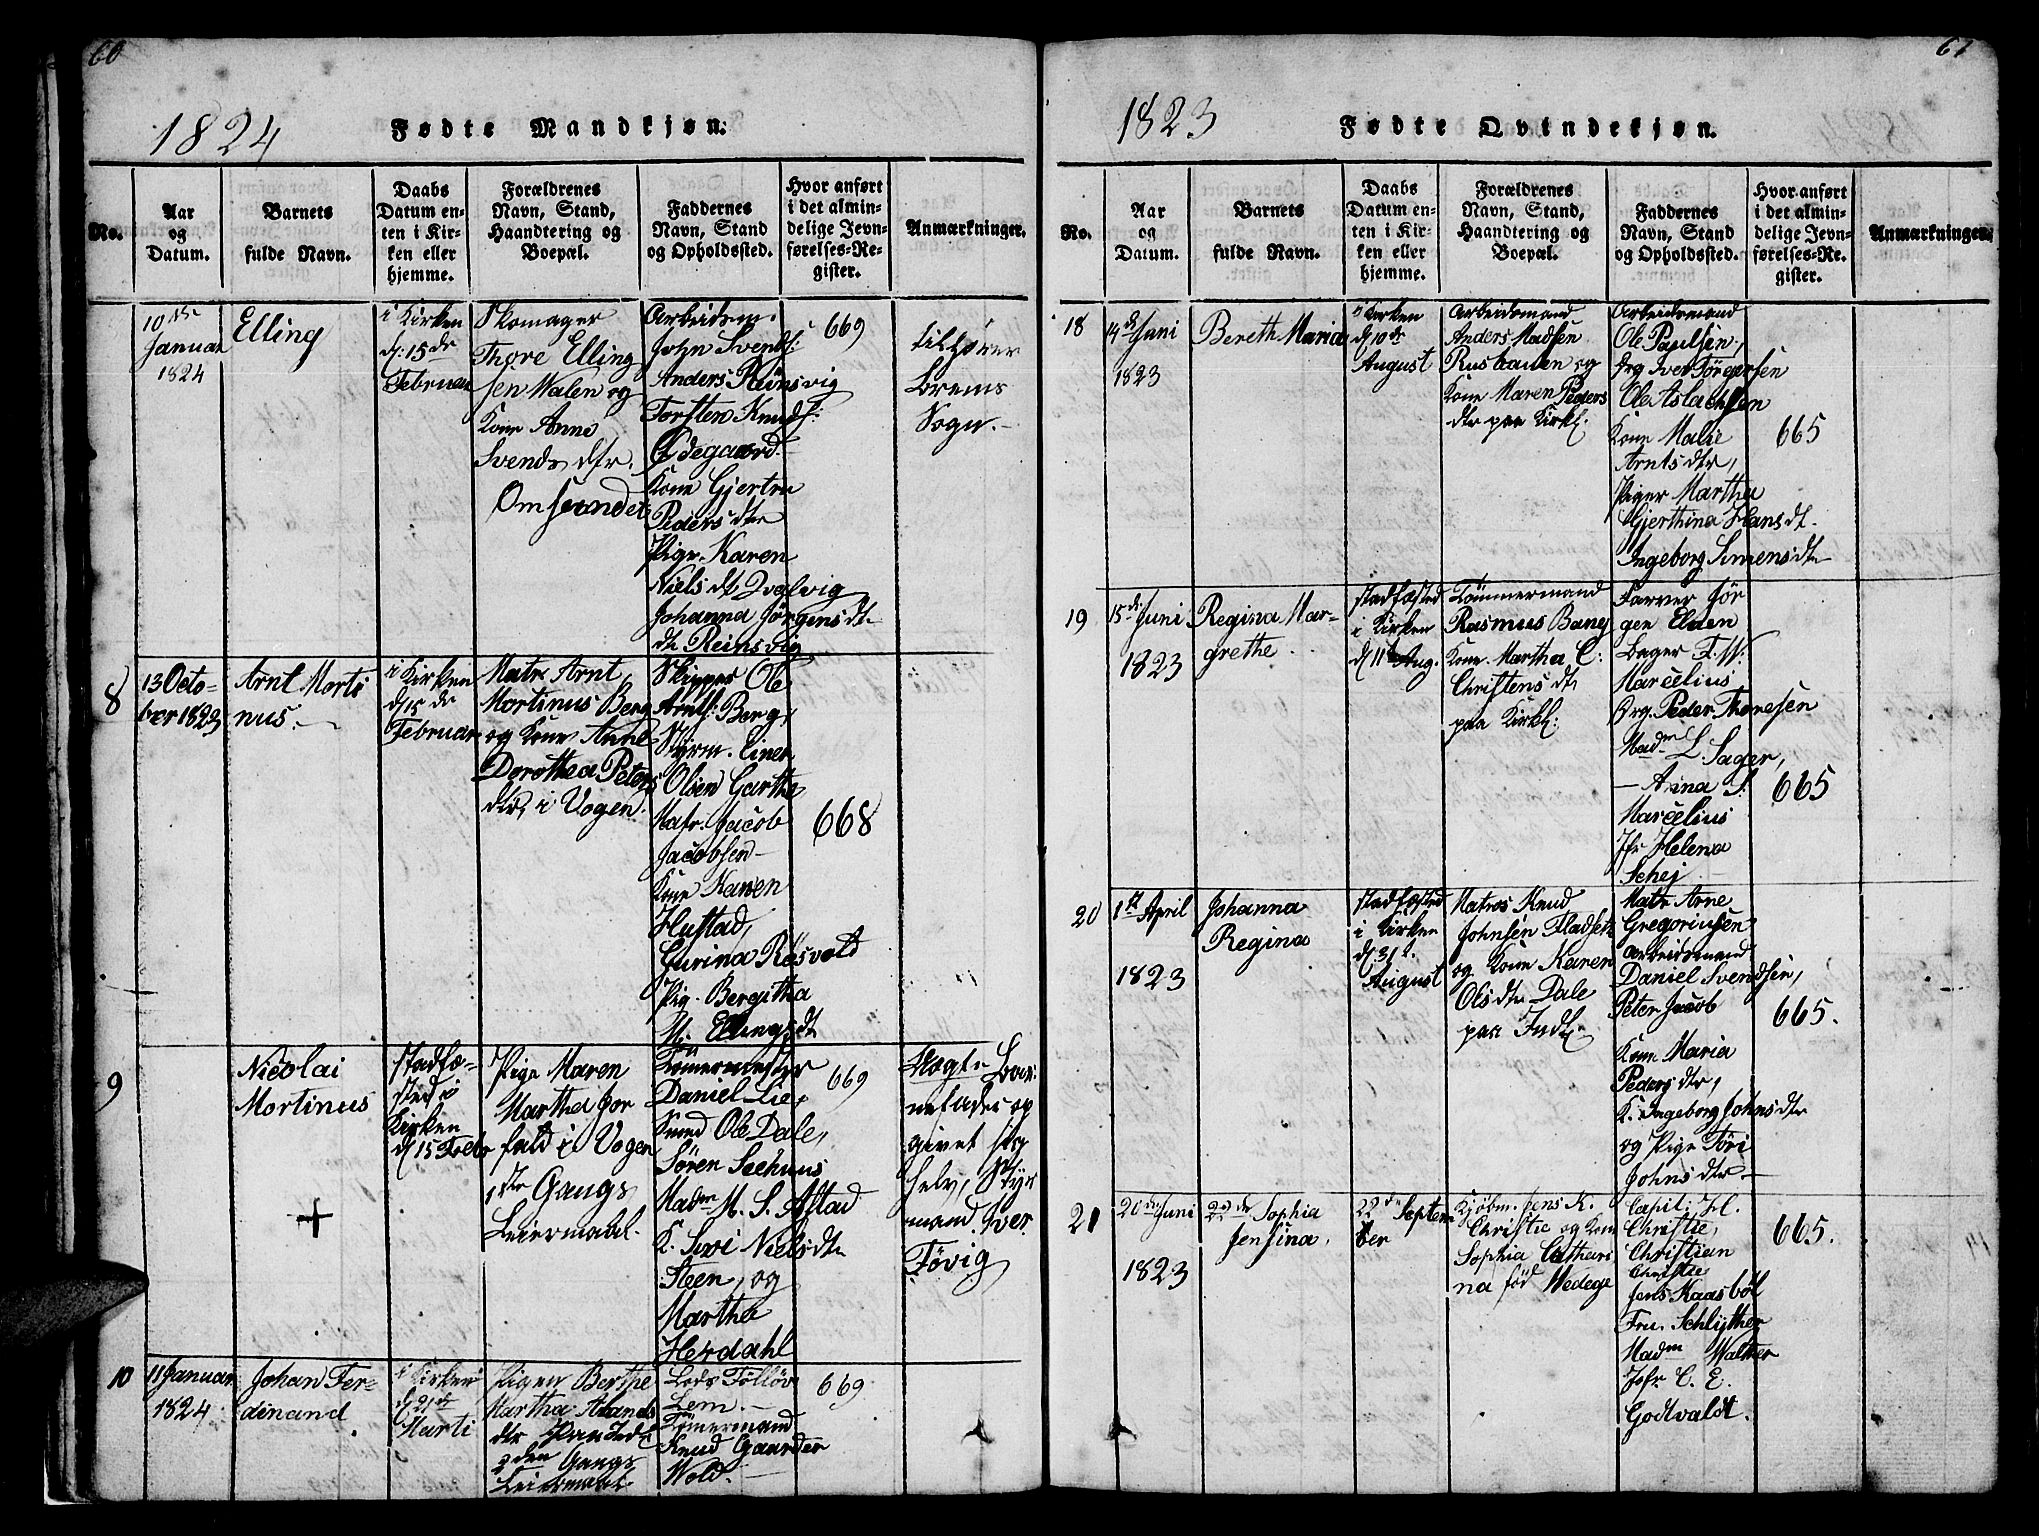 60
1824
Fødte Mandkjøn.
No.
Aar
og
Datum.
Barnets
fulde Navn.
Daabs
Datum en-
ten i Kir-
ken eller
hjemme.
Forældrenes
Navn, Stand,
Haandtering og
Boepæl.
Faddernes
Navn, Stand
og Opholdssted.
Hvor anført
i det almin-
delige Jevn-
førelses-Re-
gister.
Anmærkninger.
10de
Januar
1824
Elling
i Kirken
d: 15 de
Februar
Skomager
Thore Elling
sen Walen og
Kone Anne
Svends dtr.
Omsundet
Arbeidsm.
John Svends:
Anders Reinsvig
Torsten Knuds:
Ødegaard
Kone Gjertru
Peders dtr
Pige. Karen
Niels dt
Johanna Jörgens dt
Reinsvig
669
tilhører
Brems
Sogn.
8
13 Octo-
ber 1823
Arnt Morti
nus.
i Kirken
d 15 de
Februar
Matr. Arnt
Mortinus Berg
og Kone Anne
Dorothea Peters
dtr, i Vogen.
Skipper Ole
Arnts: Berg,
Styrm. Einer
Olsen Garthe
Matr. Jacob
Jacobsen
Kone Karen
Hustad,
Gurina Røsvold
Pig. Bergitha
M. Ellingsdt
668
9
Nicolai
Mortinus
+
stadfæ-
sted i
Kirken
d 15 Febr
Pige Maren
Martha For
fald i Vogen
1ste Gangs
Leiermaal.
Tömermester
Daniel Lie,
Smed Ole Dale,
Sören Seehuus
Madm M. S. Astad
K. Siri Niels dtr
Steen, og
Martha
Herdahl
669
Uægte Bar-
nefader op
givet sig
selv, Styr
mand Iver
Tövig
10
11 Januar
1824
Johan Fer-
dinand
i Kirken
d 21 de
Marti
Pigen Berthe
Martha Amands
dtr
2den Gangs
Leiermaal
Lods Tollöv
Lem.
Tömermand
Knud Gaarder
Wold.
669
61
1823
Fødte Qvindekjøn.
No.
Aar
og
Datum.
Barnets
fulde Navn.
Daabs
Datum en-
ten i Kir-
ken eller
hjemme.
Forældrenes
Navn, Stand,
Haandtering og
Boepæl.
Faddernes
Navn, Stand
og Opholdssted.
Hvor anført
i det almin-
delige Jevn-
førelses-Re-
gister.
Anmærkninger.
18
14 de Juni
1823
Bereth Maria
i Kirken
d 10 de
August
Arbeidsmand
Anders Madsen
Rusbauen og
Kone Maren Peders
dtr paa Kirkl.
Arbeidsmand
Ole Paulsen,
Drg Iver Törgersen
Ole Aslachsen
Kone Malie
Arnts dtr,
Piger Martha
Gjerthina Hans dt.
Ingeborg Simens dtr
665
19
15 de Juni
1823
Regina Mar-
grethe
stadfæsted
i Kirken
d 11te Aug.
Tömmermand
Rasmus Bang
Kone Martha C:
Christens dtr
paa Kirkl:
Farver Jör
gen Elnen
Bager F. W.
Marcelius
Drg. Peder Thoresen
Madm L Sager,
— Anna S:
Marcelius
Jfr Helena
Schej
665
20
1st April
1823
Johanna
Regina
stadfæsted
i Kirken
d. 31 t.
August
Matros Knud
Johnsen Fladset
og Kone Karen
Ols dtr Dale
paa Indl.
Matr Arne
Gregoriusen
Arbeidsmand
Daniel Svendsen,
Peter Jacob
Kone Maria
Peders dtr,
K. Ingeborg Johns dtr
og Pige Töri
Johns dtr
665.
21
20 de Juni
1823
Sophia
Jensina.
22 de Septem
ber
Kjöbm. Jens K.
Christie og Kone
Sophia Cathari
na föd Wedege
Capit: H.
Christie,
Christian
Christie
Jens Kaasböl
Fru. Schlyther
Madm Walther
Jofr C. E.
Godtvaldt.
665.